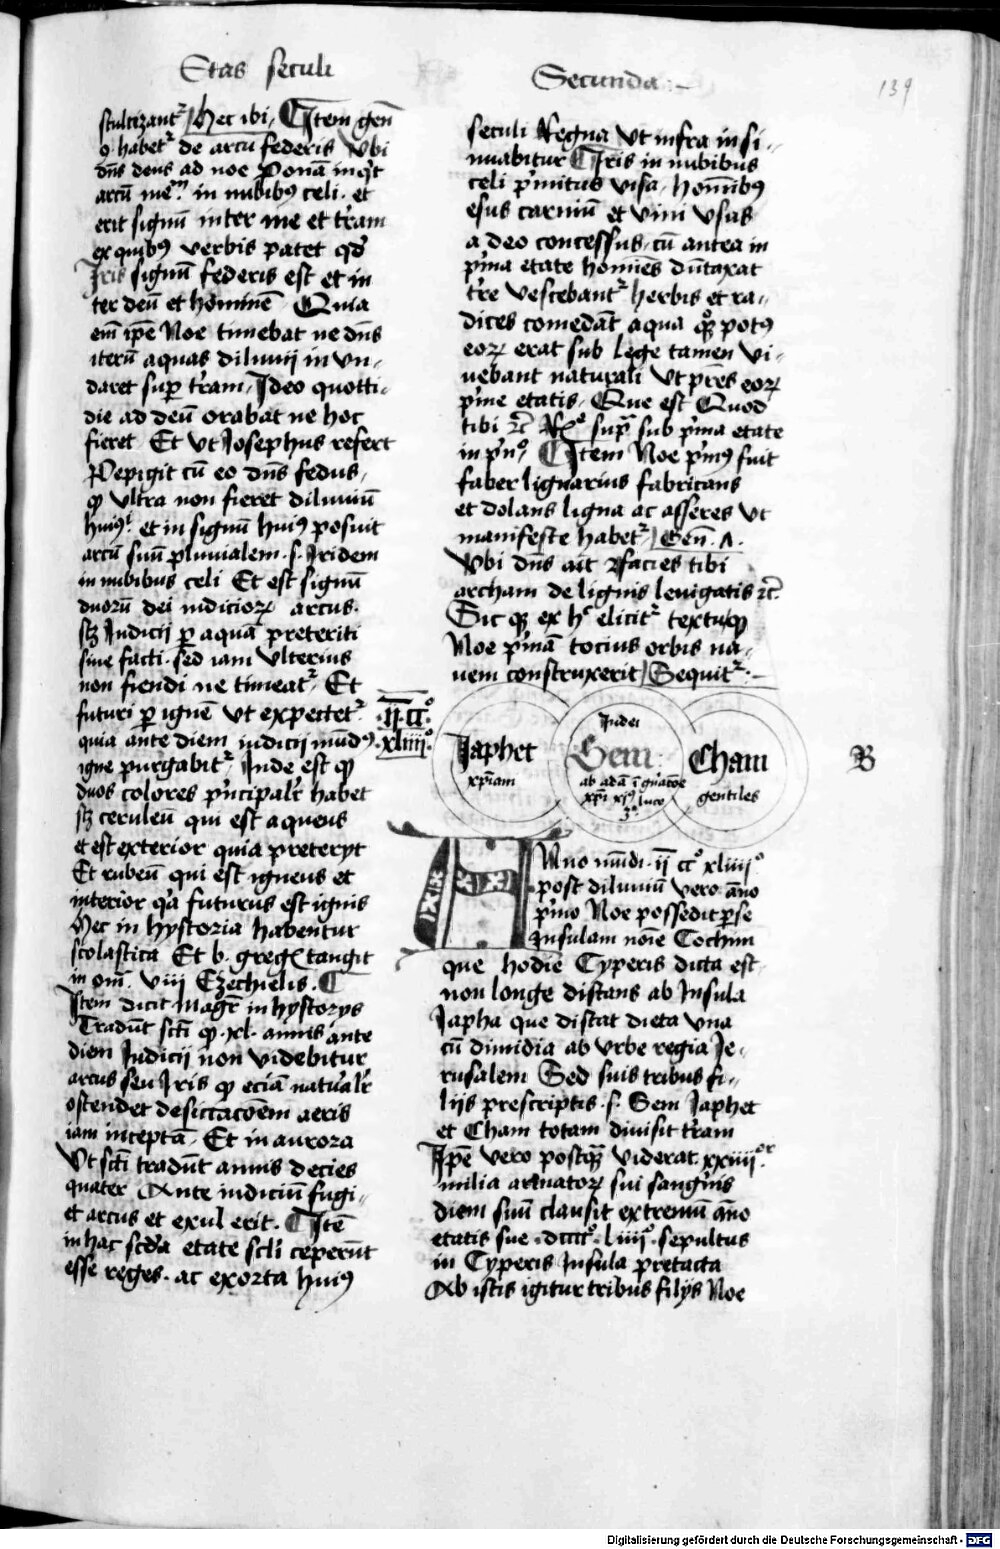 Etas seculi
Secunda
139
stultizantr Hec ibi. Item gen̄
9. habetr de arcu federis Vbi
dn̄s deus ad noe Ponā inqͥt
arcū meū in nubibꝰ celi. et
erit signū inter me et tr̄am
ex quibꝰ verbis patet qd̓
Iris signū federis est et in
ter deū et hominē Quia
em̄ ip̄e Noe timebat ne dn̄s
iterū aquas diluuij in vn-
daret suꝑ tr̄am. Ideo quotti-
die ad deū orabat ne hoc
fieret Et vt Josephus refert
Pepigit cū eo dn̄s fedus.
ꝙ vltra non fieret diluuiū
huiꝰ. et in signū huiꝰ posuit
arcū suū pluuialem .s. Iridem
in nubibus celi Et est signū
duorū dei iudicioꝝ arcus.
scꝫ Iudicii ꝑ aquā preteriti
siue facti. sed iam vlterius
non fiendi ne timeatr Et
futuri ꝑ ignē vt expectetr
quia ante diem iudicii mūdꝰ
igne purgabitr Inde est ꝙ
duos colores pͥncipalr̄ habet
scꝫ ceruleū qui est aqueus
et est exterior quia preteryt
Et rubeū qui est igneus et
interior qͥa futurus est ignis
Hec in hystoria habentur
scolastica Et b. gregꝰ tangit
in om̄. viij Ezechielis.
Item dicit Magr̄ in hystorys
Tradūt scti ꝙ .xl. annis ante
diem Iudicii non videbitur
arcus seu Iris ꝙ eciā natualr̄
ostendet desiccacōem aeris
iam inceptā. Et in aurora
Vt scti tradūt annis decies
quater Ante iudiciū fugi-
et arcus et exul erit. Itē
in hac scd̓a etate scl̓i ceperūt
esse reges. ac exorta huiꝰ
seculi Regna vt infra insi-
nuabitur Iris in nubibus
celi pͥmitus visa. homībꝰ
esus carniū et vini vsus
a deo concessus. cū antea in
pͥma etate homīes dūtaxat
tr̄e vescebantr herbis et ra-
dices comedāt aqua qꝫ potꝰ
eoꝝ erat sub lege tamen vi-
uebant naturali Vt pr̄es eoꝝ
pͥme etatis. Que est Quod
tibi ⁊c̄ supͣ sub pͥma etate
in pͥnº Item Noe pͥmꝰ fuit
faber lignarius fabricans
et dolans ligna ac asseres vt
manifeste habetr Gen̄. 6.
Vbi dn̄s ait facies tibi
archam de lignis leuigatis ⁊c̄
Sic qꝫ ex hͦ elicitr textu ꝙ
Noe pͥmā tocius orbis na-
uem construxerit Sequitr
.ij. ccº
xliiijº
Iaphet
xp̄iam
Iudei
Sem
Cham
gentiles
B
Anno mūdi. ij ccº xliiijº
post diluuiū vero āno
pͥmo Noe possedit ꝑ se
Insulam noīe Cochim
que hodie Cyperis dicta est
non longe distans ab Insula
Japha que distat dieta vna
cū dimidia ab vrbe regia Je-
rusalem Sed suis tribus fi-
lijs prescriptis .s. Sem Japhet
et Cham totam diuisit tr̄am
Ip̄e vero postqͣ̄ viderat. xxiiijºʳ
milia armatoꝝ sui sangͥnis
diem suū clausit extremū āno
etatis sue .dccccº. liiijº. sepultus
in Cyperis Insula pretacta
Ab istis igitur tribus filijs Noe
Digitalisierung gefördert durch die Deutsche Forschungsgemeinschaft - DFG